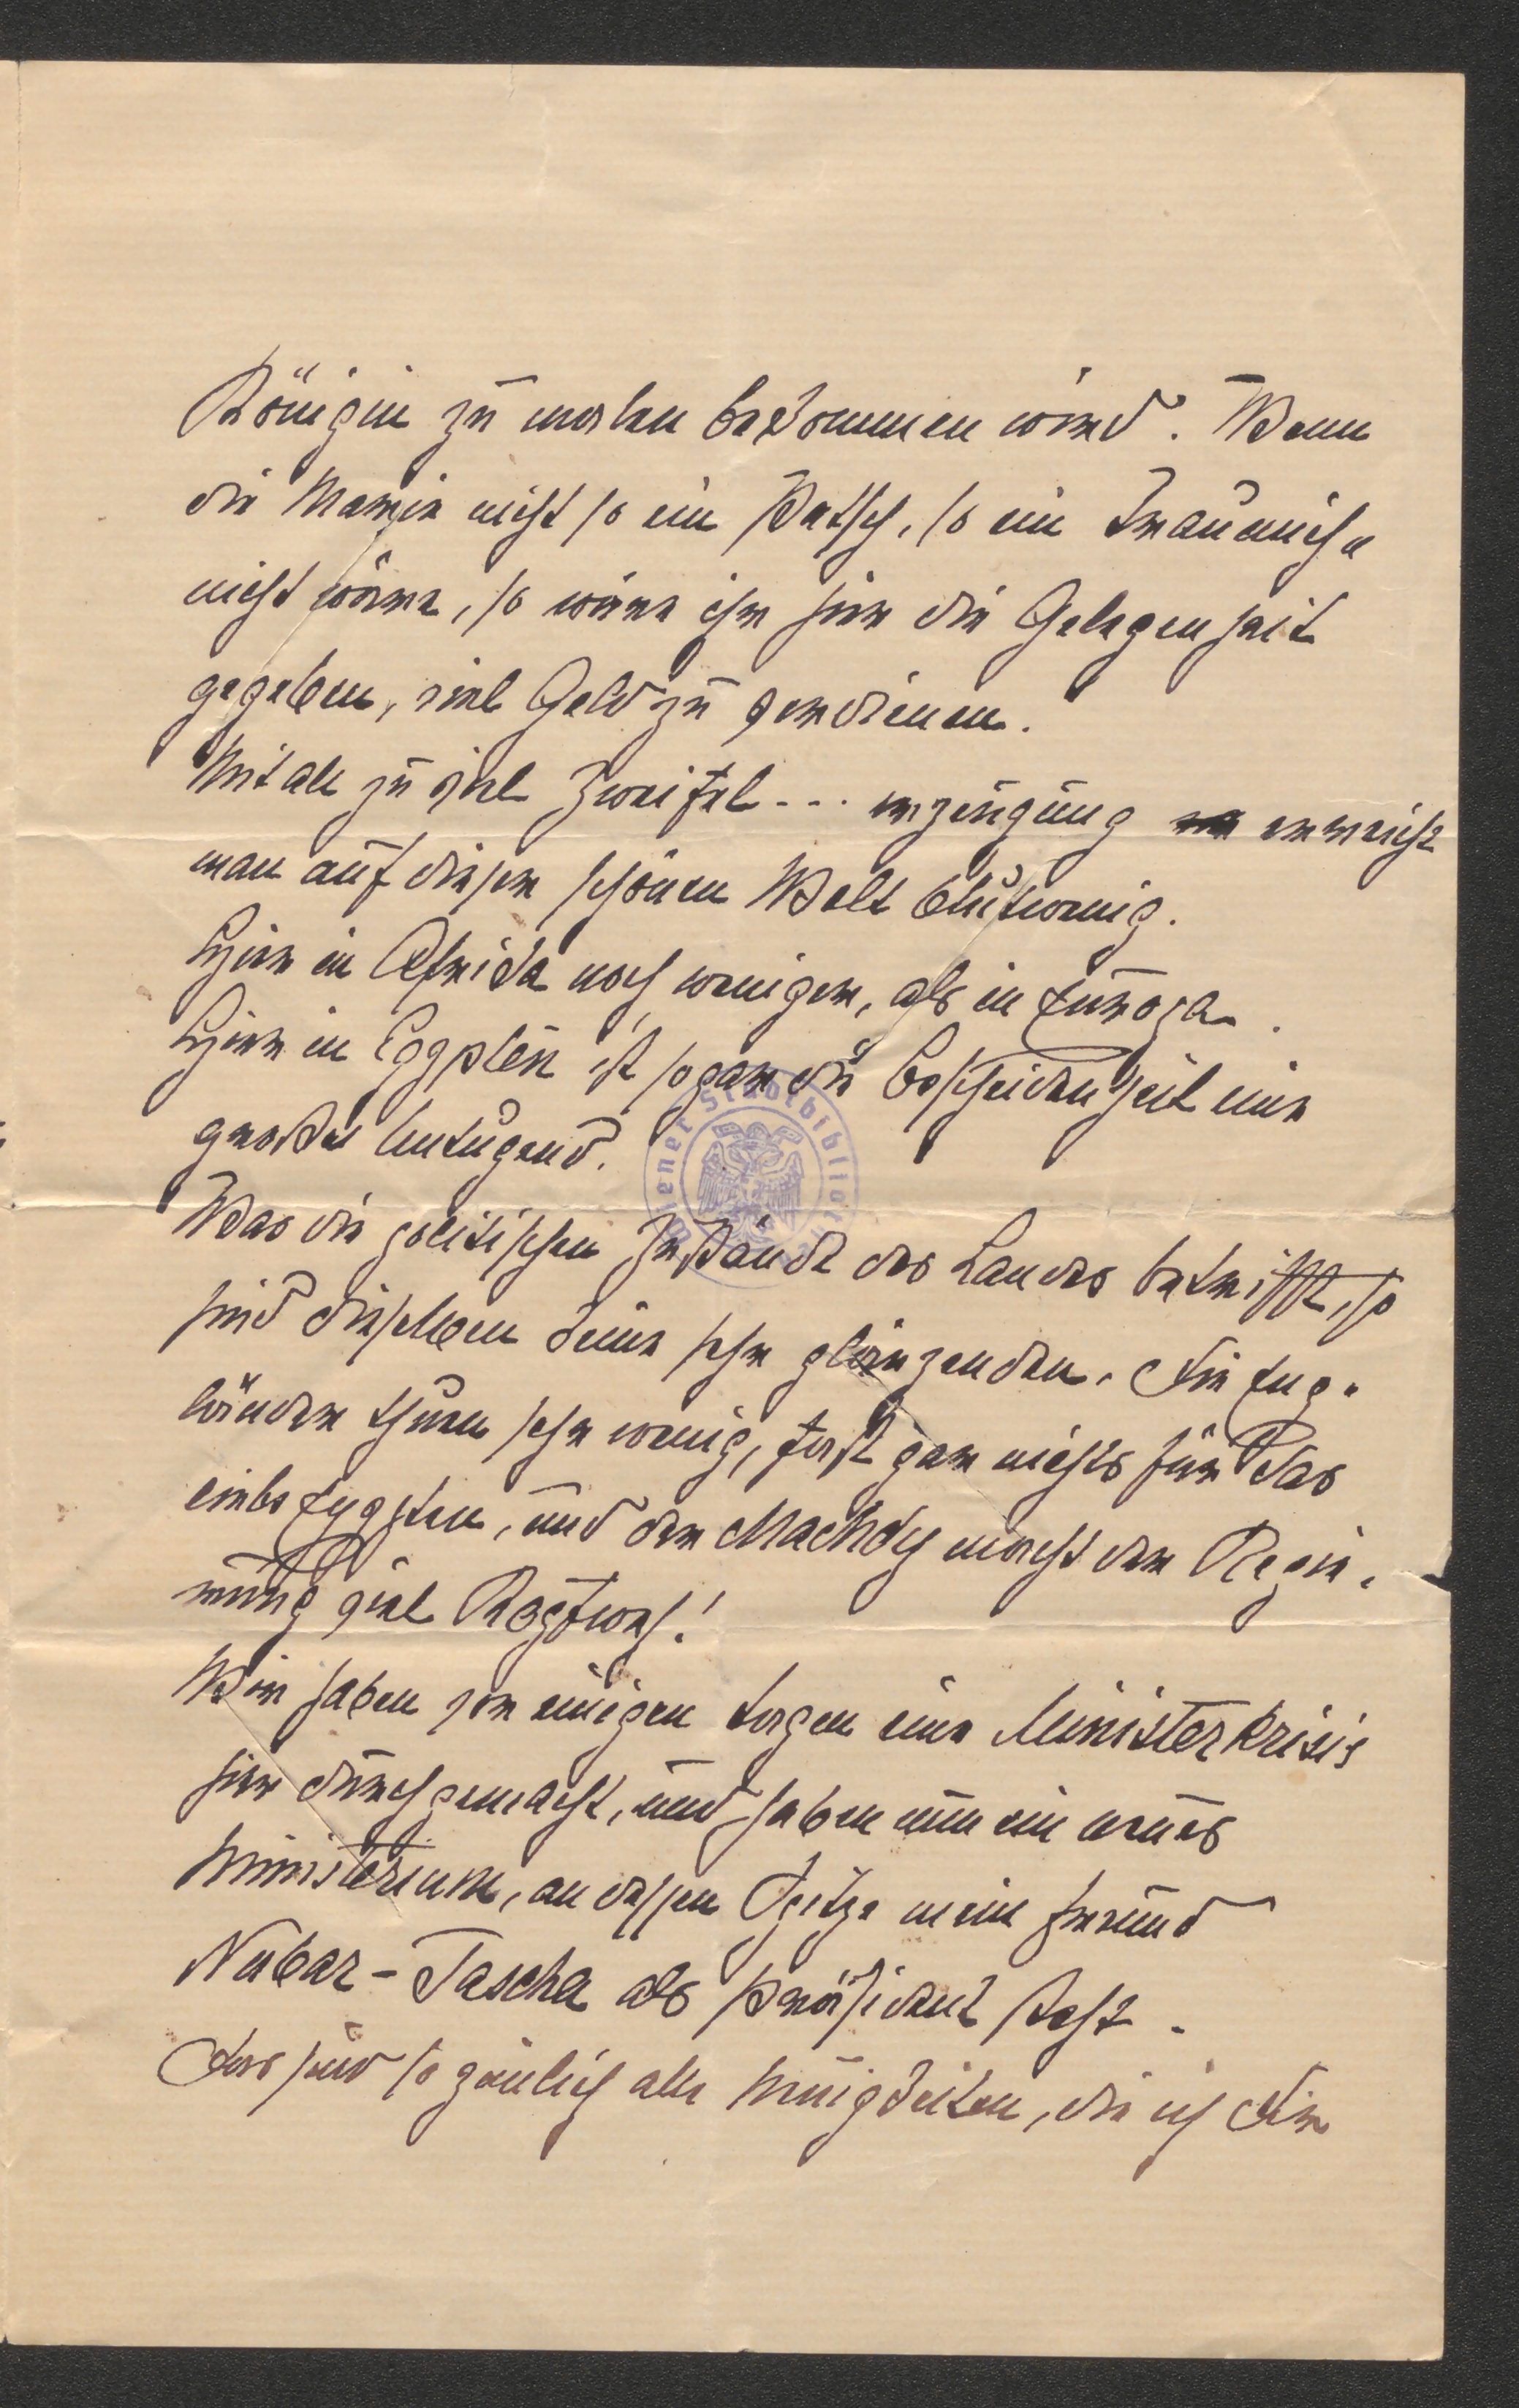 Königin zu malen bekommen wird. Wenn
die Marie nicht so ein Patsch, so ein
nicht wäre, so wäre ihr hier die Gelegenheit
gegeben, viel Geld zu verdienen.
Mit all zu viel Zweifel... erreicht
man auf dieser schönen Welt blutwenig.
Hier in Afrika noch weniger, als in Europa.
Hier in Egypten ist sogar die Bescheidenheit eine
große Untugend.
Was die politischen Zustände des Landes betrifft, so
sind dieselben keine sehr glänzenden. Die Eng-
länder thuen sehr wenig, fast gar nichts für das
liebe Egypten, und der Machdy macht der Regie-
rung viel Kopfweh!
Wir haben vor einigen Tagen eine Ministerkrisis
hier durchgemacht, und haben nun ein neues
Ministerium, an dessen Spitze mein Freund
Nubar-Pascha als Präsident steht.
Das sind so ziemlich alle Neuigkeiten, die ich Dir
Wiener Stadtbibliothek